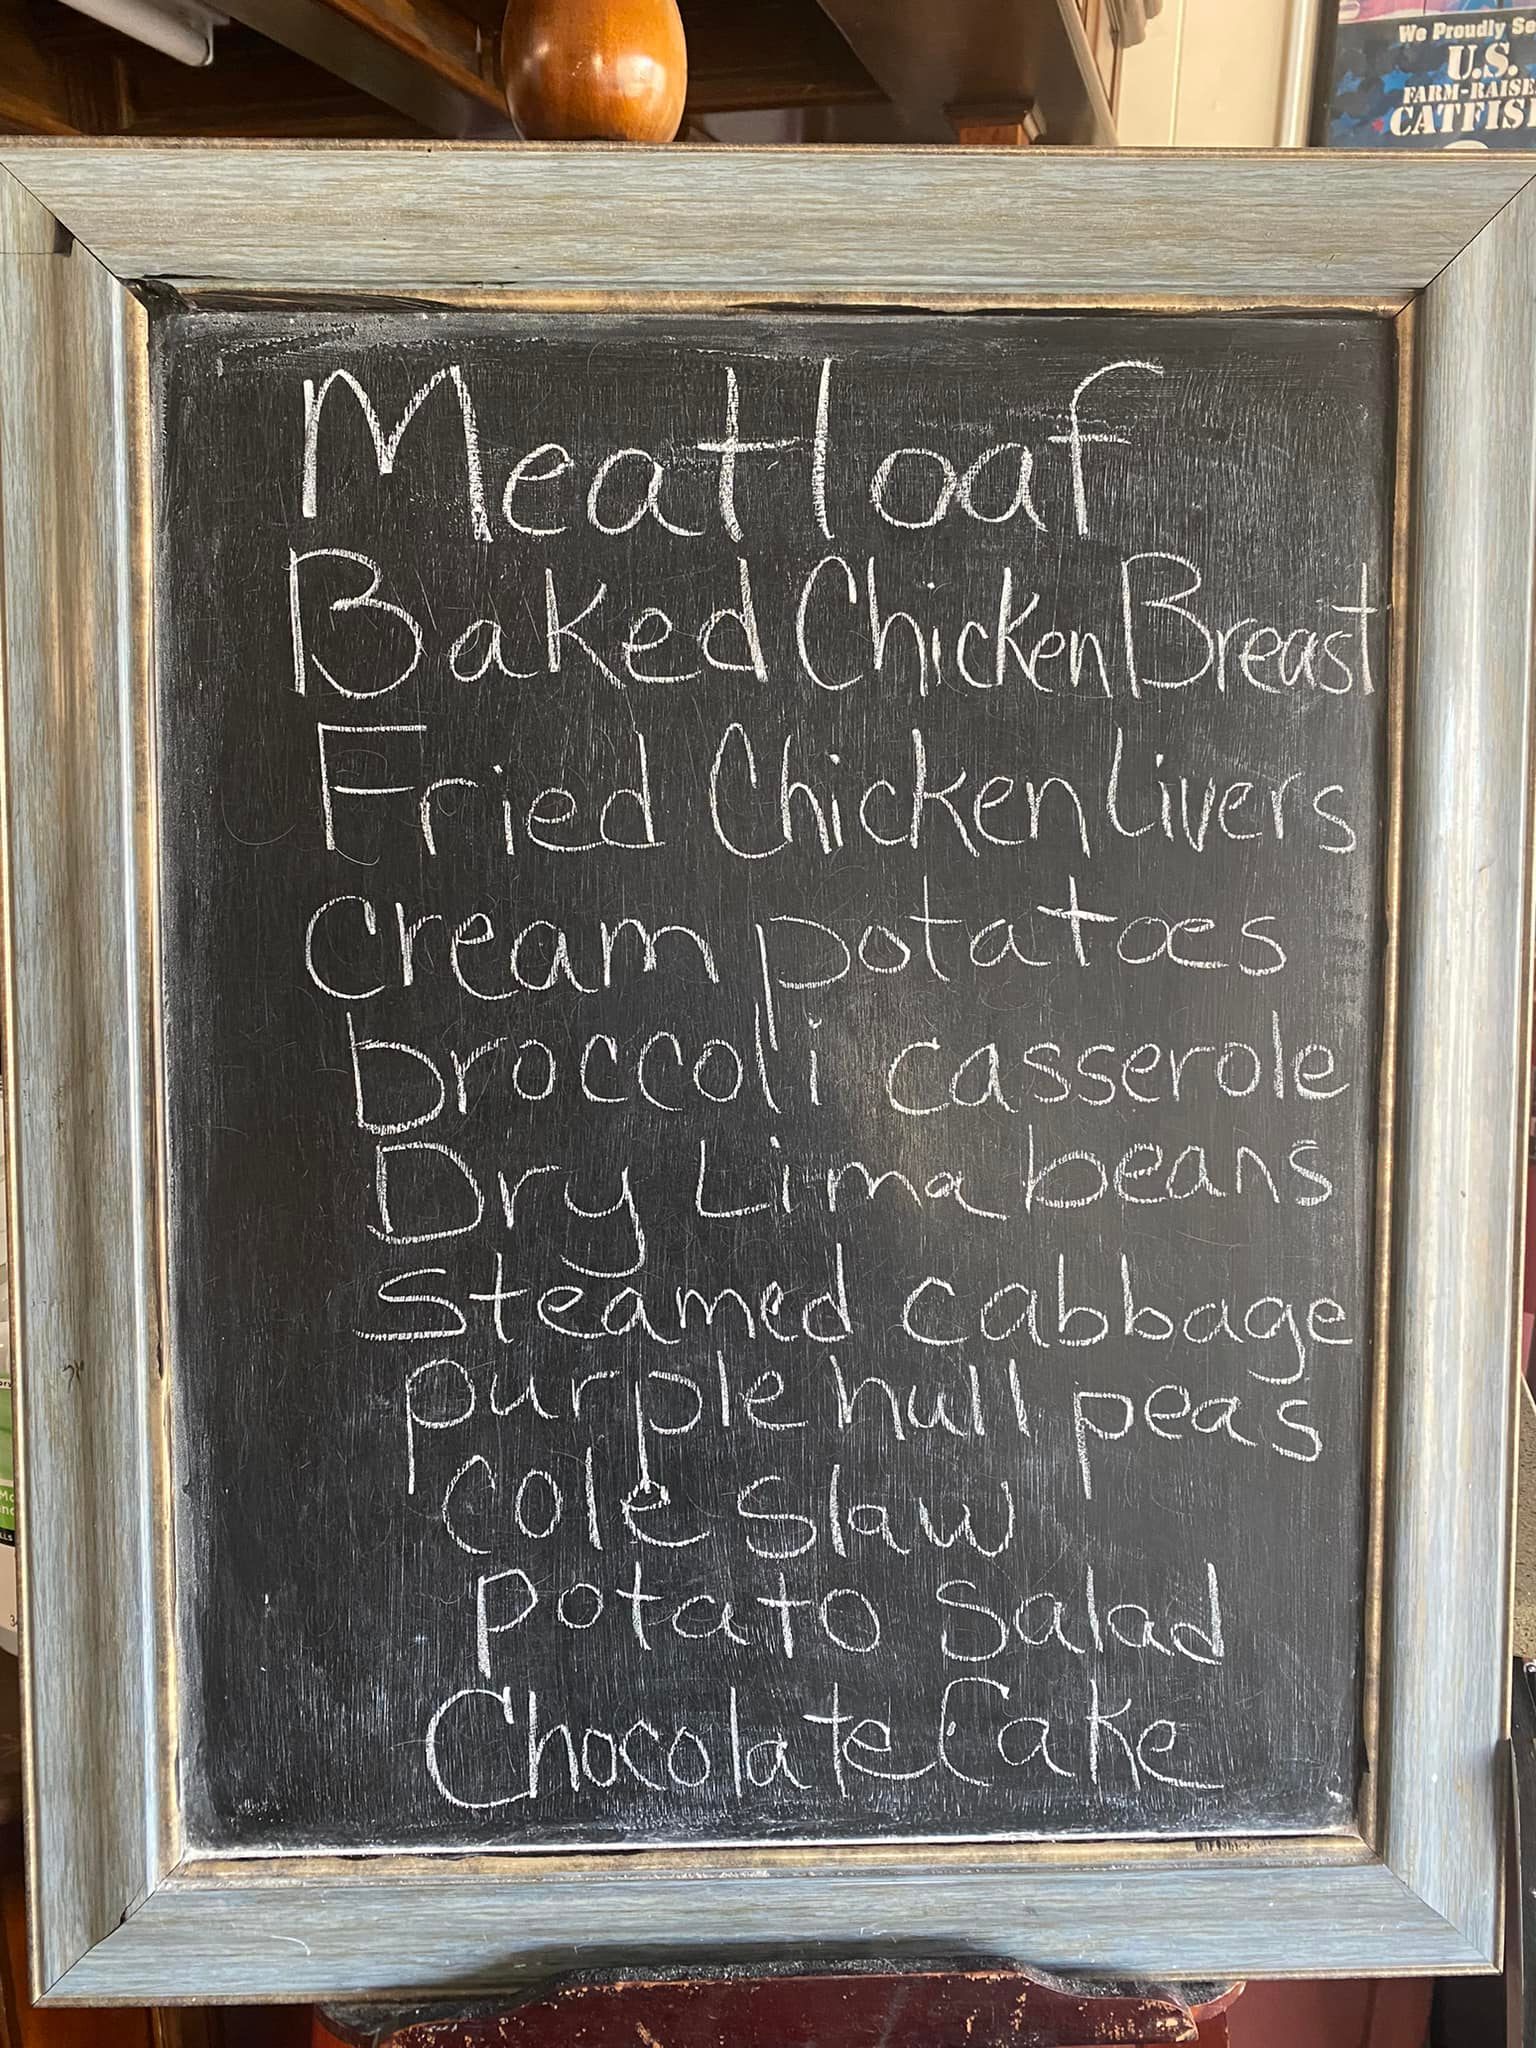 We Proudly Se
U.S.
FARM-RAISE
CATFIS
Meatloaf
Baked Chicken Breast
Fried Chicken Livers
Cream potatoes
broccoli casserole
Dry Lima beans
Steamed cabbage
purple hull peas
cole slaw
potato salad
Chocolate Cake